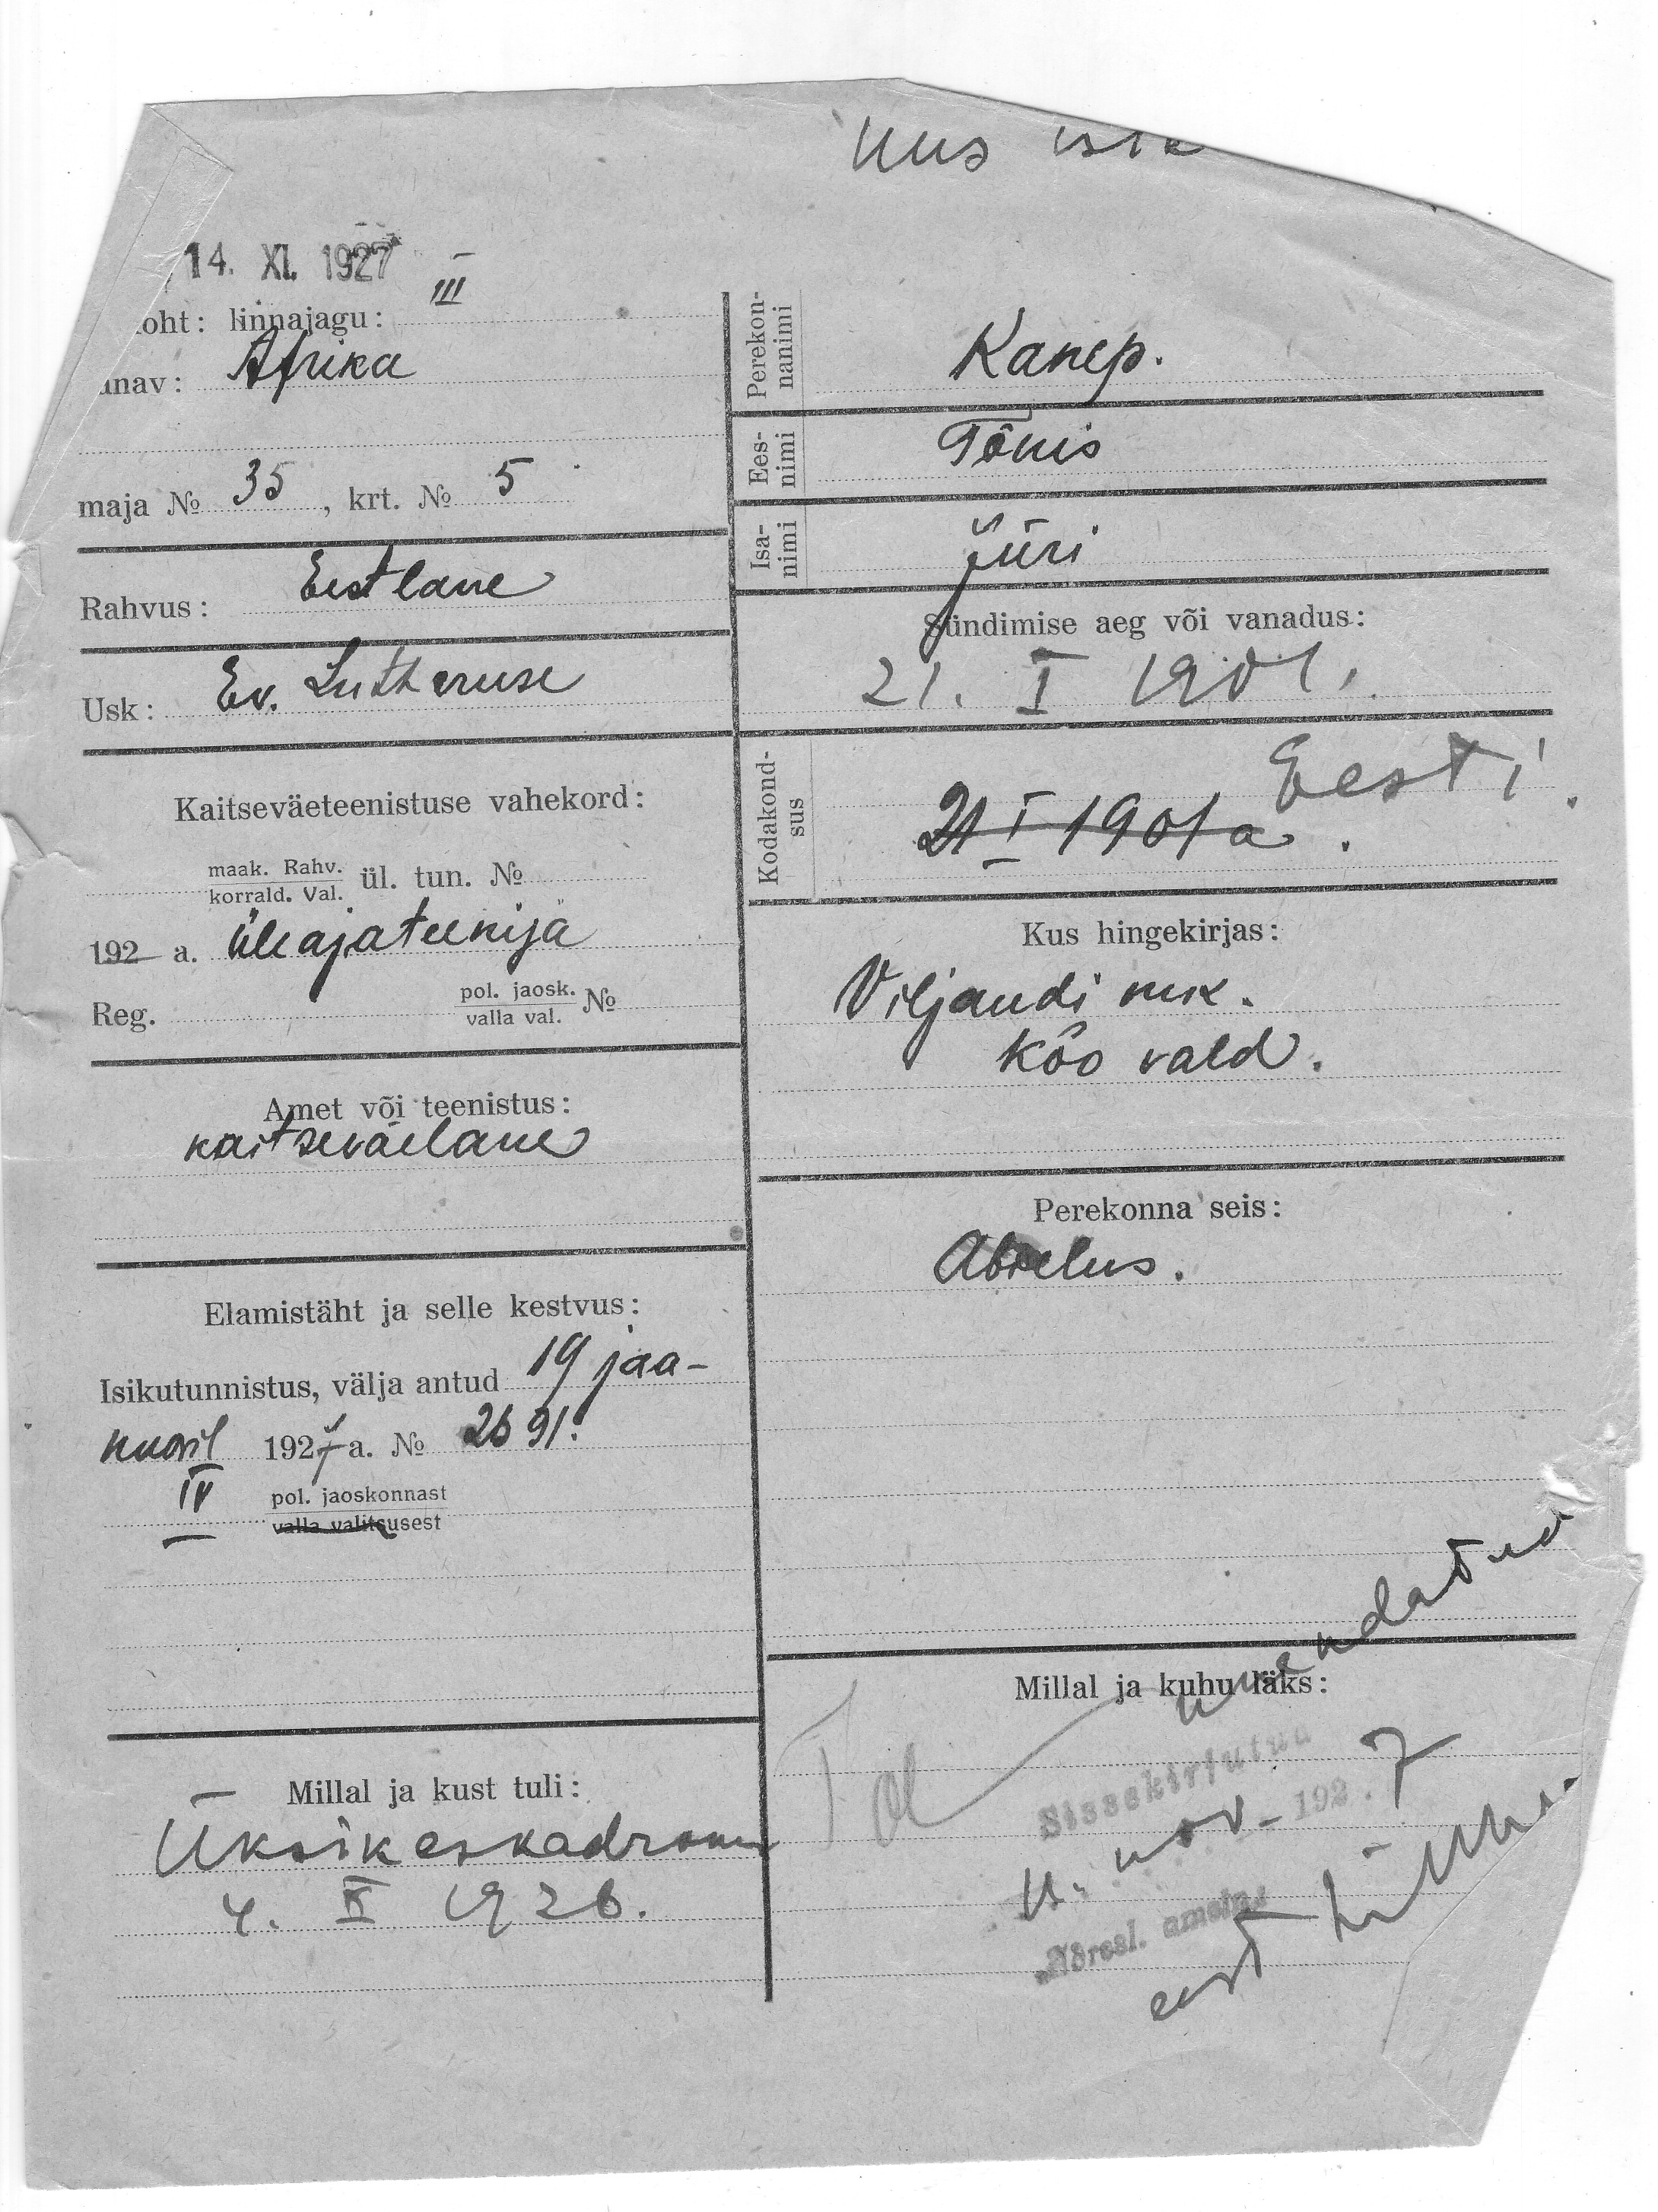 Uus isik
14. XI. 1927
oht: linnajagu: III
änav: Afrika
maja № 35, krt. № 5
Rahvus: Eestlane
Usk: Ev. Lutheruse
Kaitseväeteenistuse vahekord:
maak. Rahv.
korrald. Val. ül. tun. №
192 a. üleajateenija
Reg. pol. jaosk.
valla val. №
Amet või teenistus:
kaitseväelane
Elamistäht ja selle kestvus:
Isikutunnistus, välja antud 19 jaa-
nuaril 1927 a. № 2691.
IV pol. jaoskonnast
valla valitsusest
Millal ja kust tuli:
Üksikeskadron
4. X 1926.
Perekon-
nanimi Kanep.
Ees-
nimi Tõnis
Isa-
nimi Jüri
Sündimise aeg või vanadus:
21. I 1901.
Kodakond-
sus Eesti.
21 I 1901 a.
Kus hingekirjas:
Viljandi mk.
Kõo vald.
Perekonna seis:
Abielus.
Millal ja kuhu läks:
uuendatud
Sissekirjutud
11. nov. 1927
Adresl. ametn.